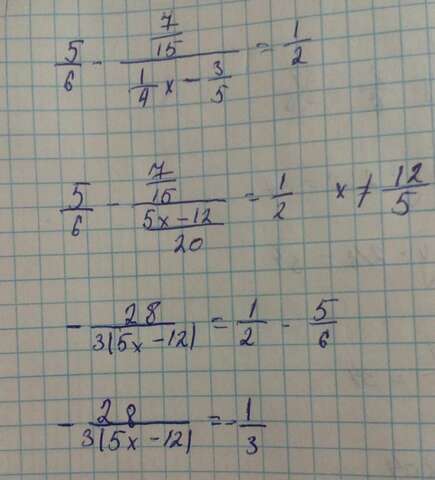 5/6 - (7/15)/(1/4 x - 3/5) = 1/2
5/6 - (7/15)/((5x-12)/20) = 1/2 x ≠ 12/5
- 28/(3|5x-12|) = 1/2 - 5/6
- 28/(3|5x-12|) = -1/3